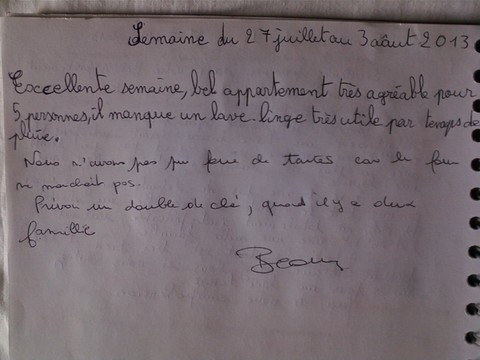 Semaine du 27 juillet au 3 août 2013
Exccellente semaine, bel appartement très agréable pour
5 personnes, il manque un lave-linge très utile par temps de
pluie.
Nous n'avons pas pu faire de tartes car le four
ne marchait pas.
Prévoir un double de clé, quand il y a deux
famille